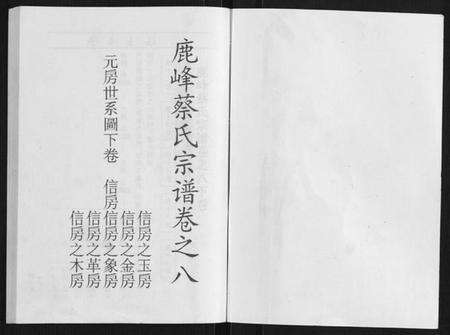 鹿峰蔡氏宗谱卷之八
元房世系圖下卷　信房
信房之玉房
信房之金房
信房之象房
信房之革房
信房之木房